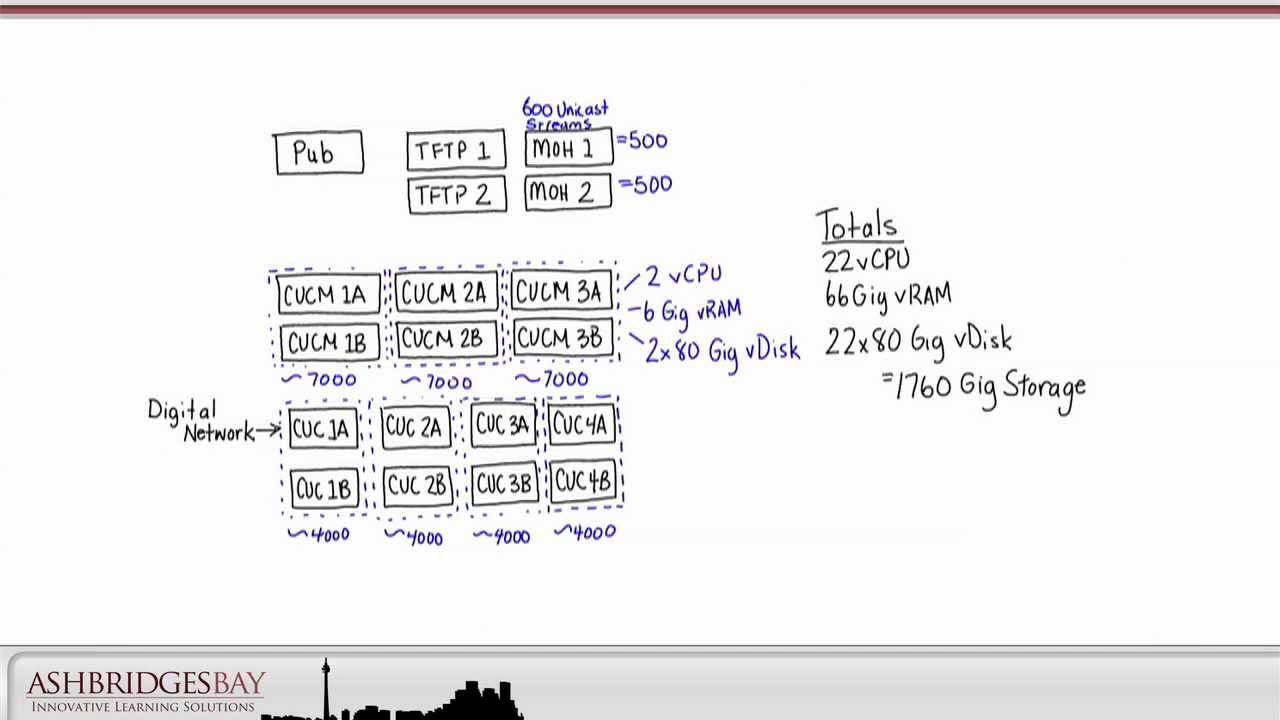 600 Unicast
Streams
Pub
TFTP 1
MOH 1
=500
TFTP 2
MOH 2
=500
CUCM 1A
CUCM 2A
CUCM 3A
2 vCPU
CUCM 1B
CUCM 2B
CUCM 3B
6 Gig vRAM
2x80 Gig vDisk
~7000
~7000
~7000
Totals
22vCPU
66Gig vRAM
22x80 Gig vDisk
=1760 Gig Storage
Digital
Network
CUC 1A
CUC 2A
CUC 3A
CUC 4A
CUC 1B
CUC 2B
CUC 3B
CUC 4B
~4000
~4000
~4000
~4000
ASHBRIDGESBAY
INNOVATIVE LEARNING SOLUTIONS